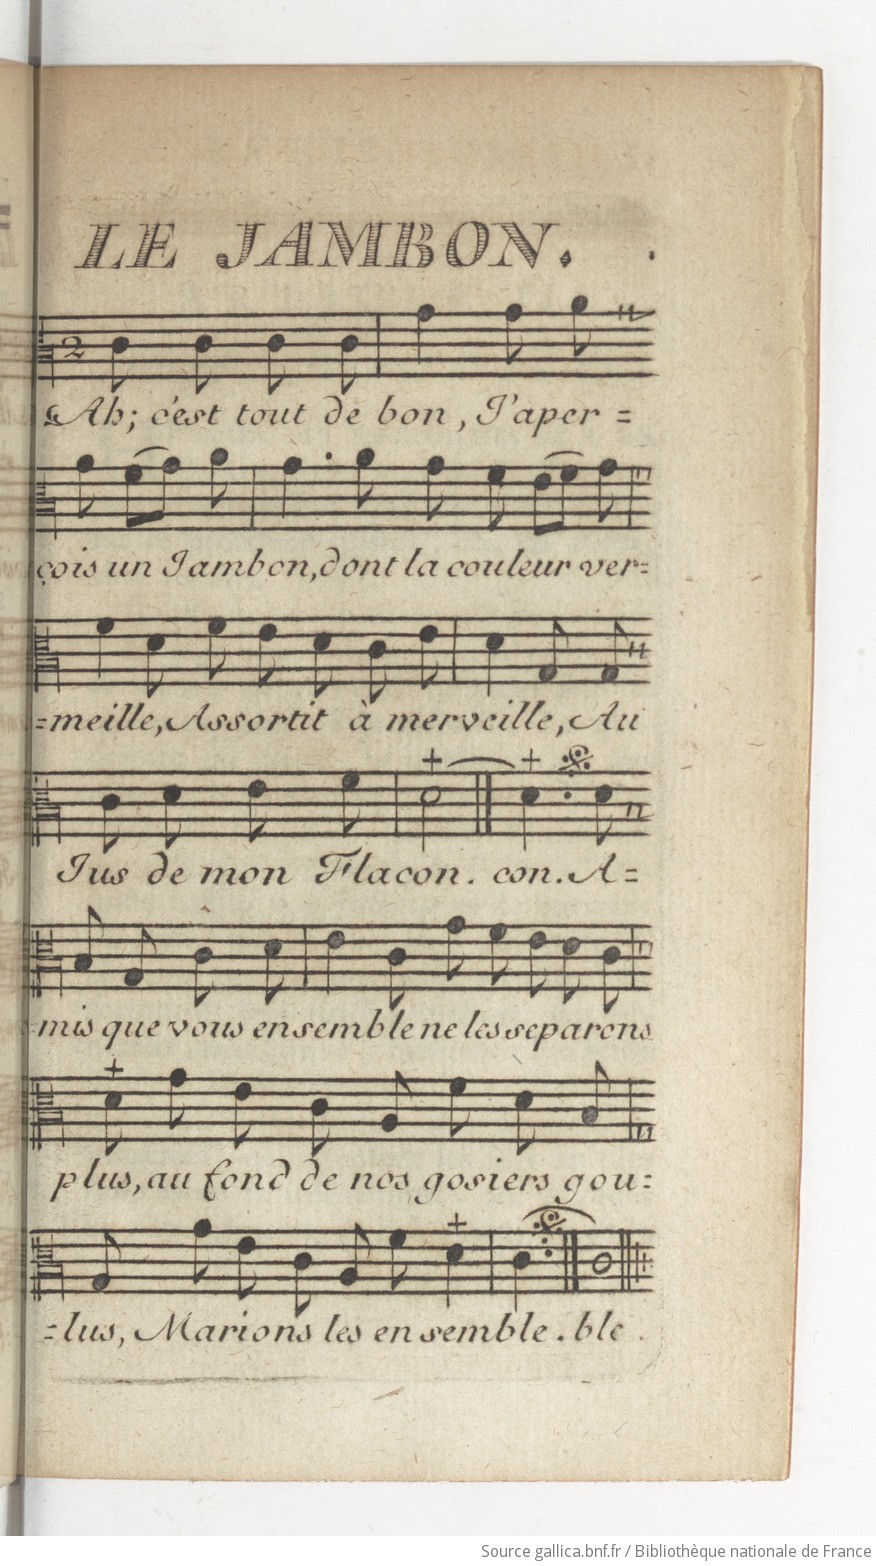 LE JAMBON.
2
Ah; c'est tout de bon, J'aper =
çois un Jambon, dont la couleur ver=
=meille, Assortit à merveille, Au
Jus de mon Flacon. con. A=
=mis que vous ensemble ne les separons
plus, au fond de nos gosiers gou=
=lus, Marions les ensemble. ble.
Source gallica.bnf.fr / Bibliothèque nationale de France